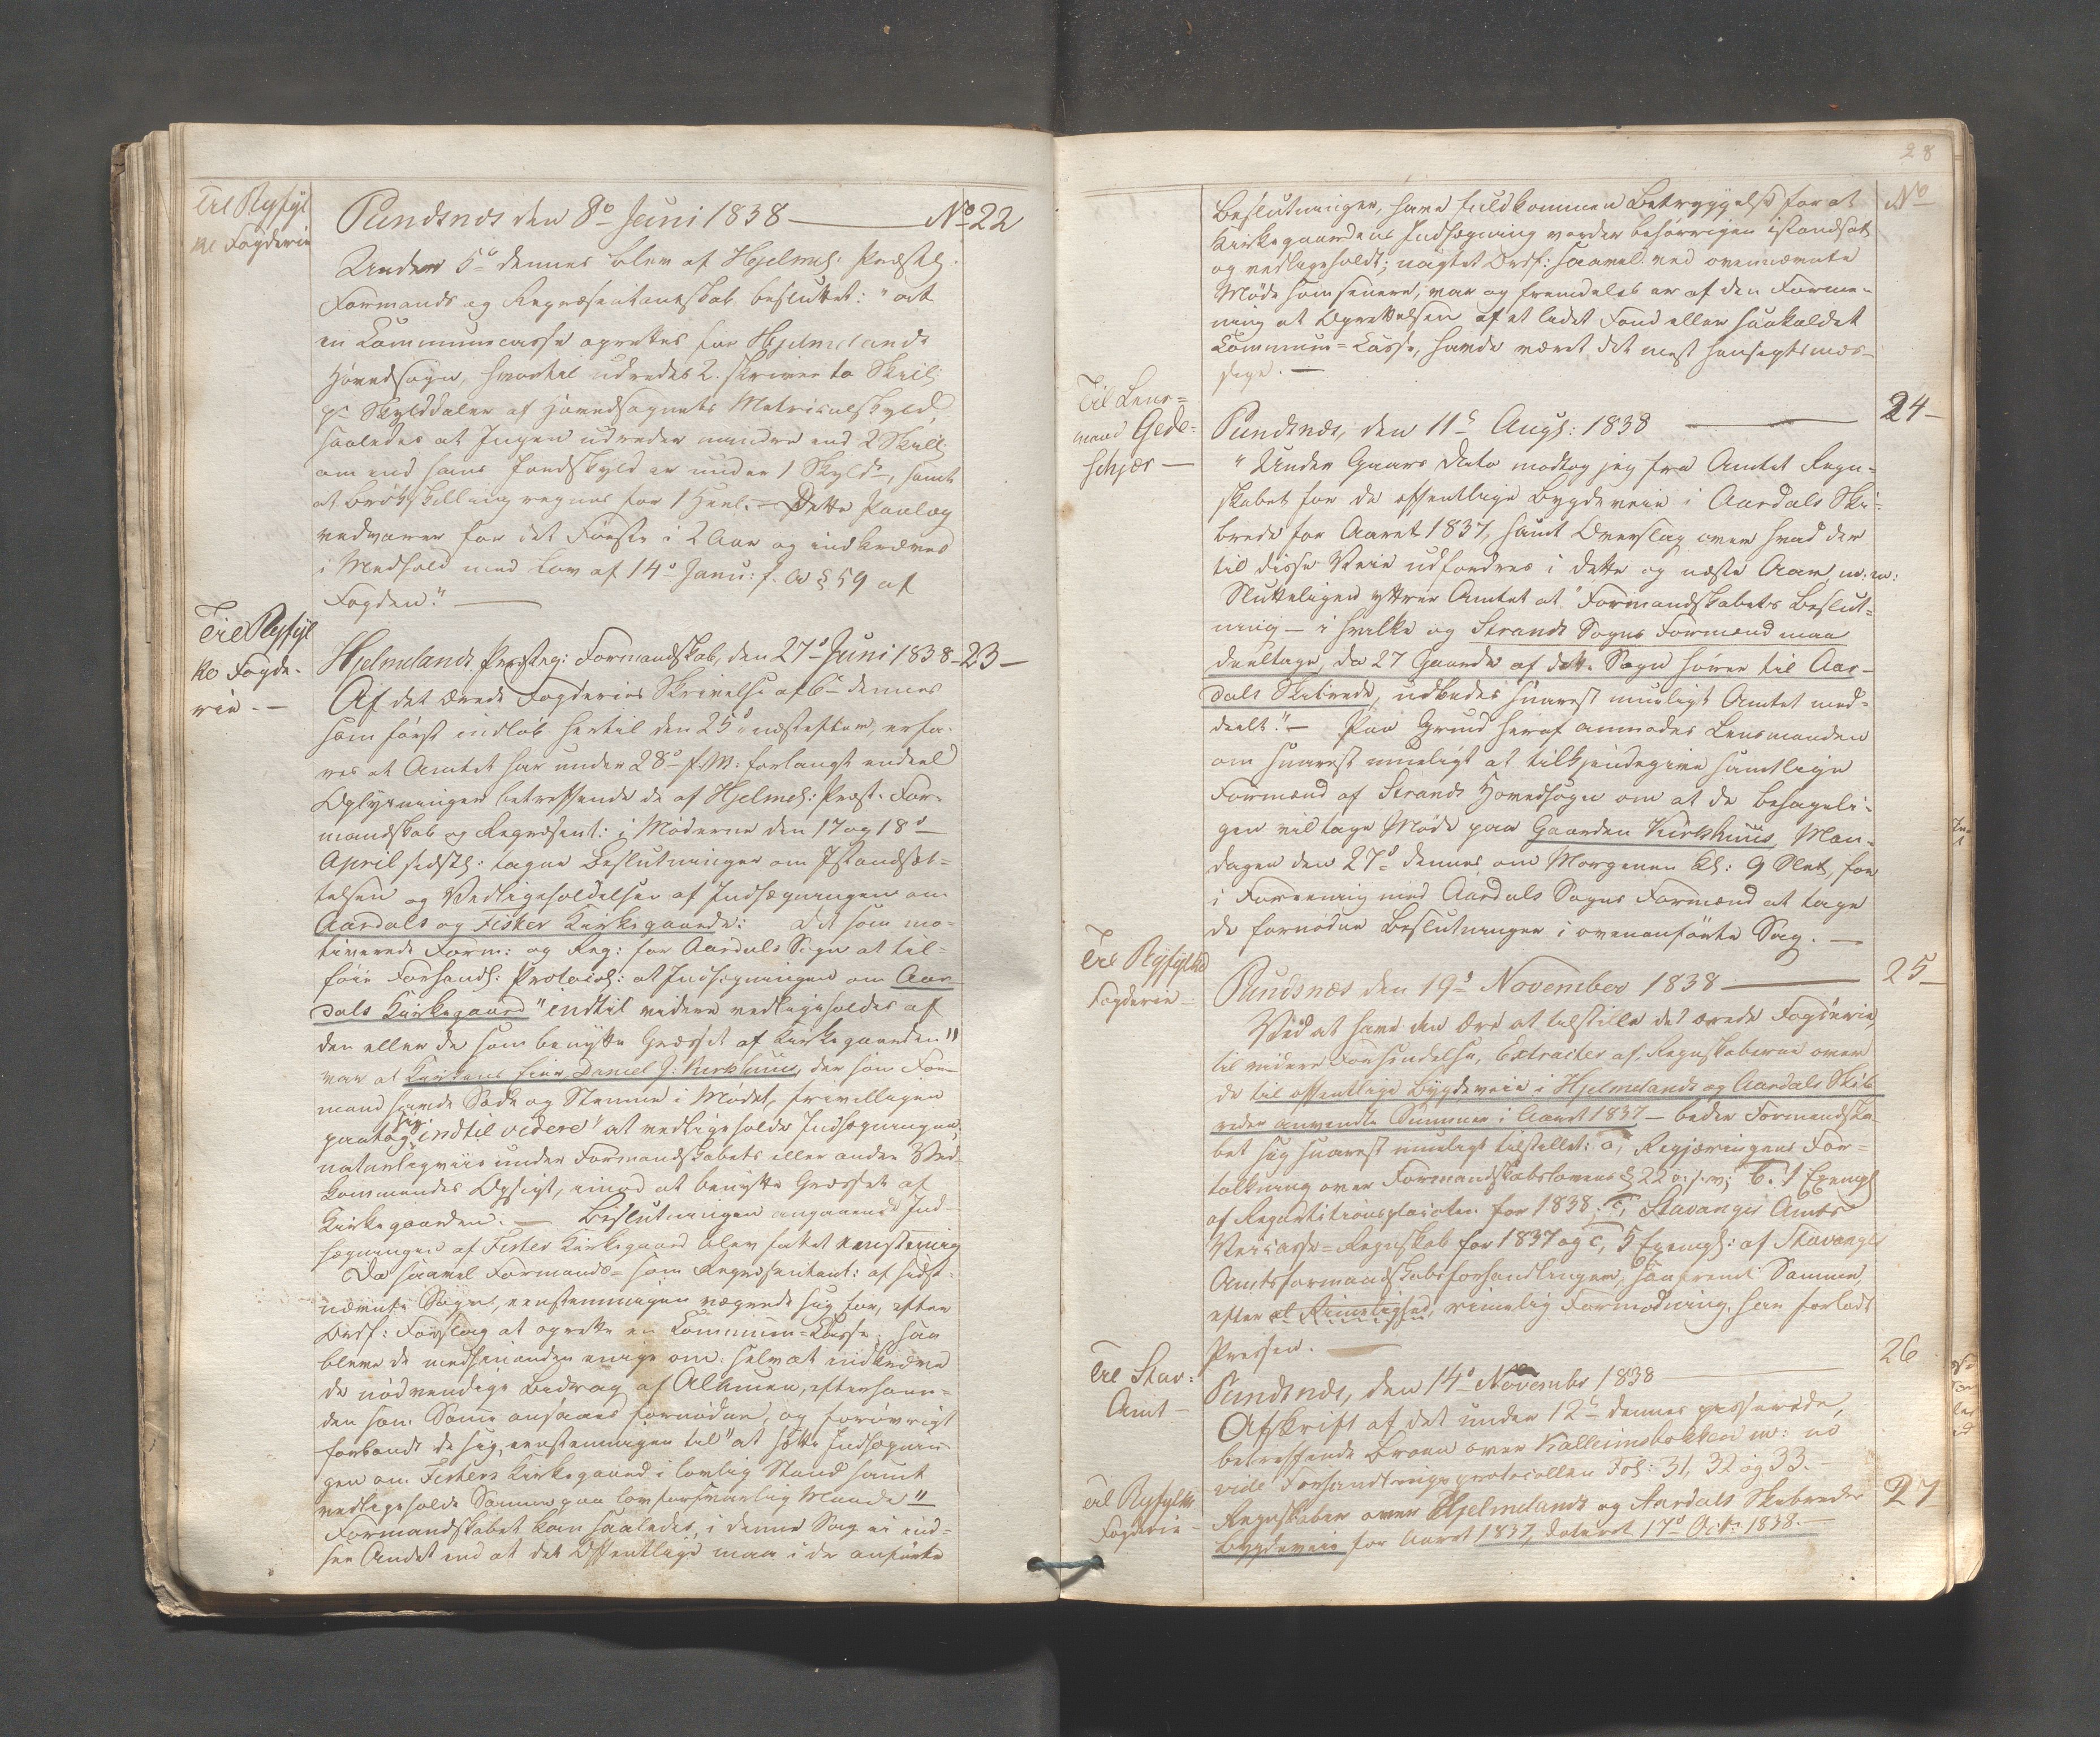 Til Ryfyl
ke Fogderie
Pundsnæs den 8de Juni 1838 — No 22
Under 5te dennes blev af Hjelmel: Præsteg.
Formands og Repræsentantskab besluttet: "at
en Communecasse oprettes for Hjelmelands
Hovedsogn, hvortil udredes 2. skriver to Skill:
pr Skylddaler af Hovedsognets Matriculskyld,
saaledes at Ingen udreder mindre end 2 Skill:
om end hans Jordskyld er under 1 Skyldr, samt
at Brøkskilling regnes for 1 Heel. — Dette Paalæg
vedvarer for det Første i 2 Aar og indkræves
i Medhold med Lov af 14de Janu: f. A § 59 af
Fogden." —
Til Ryfyl
ke Fogde-
rie. —
Hjelmelands Præsteg: Formandskab, den 27de Juni 1838 - 23 —
Af det ærede Fogderies Skrivelse af 6te dennes
som først indløb hertil den 25de næstefter, erfa-
res at Amtet har under 28de f. M: forlangt endeel
Oplysninger betreffende de af Hjelmel: Præst. For-
mandskab og Repræsent: i Møderne den 17 og 18de
April sidstl: tagne Beslutninger om Istandsæt-
telsen og Vedligeholdelsen af Indhegningen om
Aardals og Fister Kirkegaarde: Det som mo-
tiverede Form: og Rep: for Aardals Sogn at til-
føie Forhandl: Protocol: at Indhegningen om Aar-
dals Kirkegaard "indtil videre vedligeholdes af
den eller de som benytte Græsset af Kirkegaarden"
var at Kirkens Eier, Daniel J: Kirkhuus, der som For-
mand havde Sæde og Stemme i Mødet, frivilligen
paatog sig "indtil videre" at vedligeholde Indhegningen,
naturligviis under Formandskabets eller anden Ved-
kommendes Opsigt, imod at benytte Græsset af
Kirkegaarden. — Beslutningen angaaende Ind-
hegningen af Fister Kirkegaard blev fattet eenstemig
Da saavel Formands- som Repræsentant: af sidst-
nævnte Sogn, eenstemmigen vægrede sig for, efter
Ordf: Forslag at oprette en Commune-Casse; saa
bleve de medhinanden enige om: selv at indkræve
de nødvendige Bidrag af Almuen, eftersom-
den som Samme ansaaes fornøden, og forøvrigt
forbandt de sig, eenstemmigen til "at sætte Indhegnin-
gen om Fisters Kirkegaard i lovlig Stand samt
vedligeholde Samme paa lovforsvarlig Maade"
Formandskabet kan saaledes, i denne Sag ei ind-
see Andet end at det Offentlige maa i de anførte
28
No
Beslutninger, have fuldkommen Betryggelse for at
Kirkegaardens Indhegning vorder behørigen istandsat
og vedligeholdt; uagtet Ordf: saavel ved ovennævnte
Møde som senere, var og fremdeles er af den Forme-
ning at Oprettelsen af et lidet Fond eller saakaldet
Commune-Casse, havde været det mest hensigtsmæs-
sige. —
Til Lens-
mand Gede-
schjær —
Pundsnæs, den 11te Augs: 1838 — 24 —
"Under Gaars Dato modtog jeg fra Amtet Regn-
skabet for de offentlige Bygdeveie i Aardals Ski-
brede for Aaret 1837, samt Overslag over hvad der
til disse Veie udfordres i dette og næste Aar, m: m:
Sluttelig yttrer Amtet at "Formandskabets Beslut-
ning — i hvilke og Strands Sogns Formænd maa
deeltage, da 27 Gaarde af dette Sogn hører til Aar-
dals Skibrede, udbedes snarest mueligt Amtet med-
deelt." — Paa Grund heraf anmodes Lensmanden
om snarest mueligt at tilkjendegive samtlige
Formænd af Strands Hovedsogn om at de behageli-
gen vil tage Møde paa Gaarden Kirkhuus, Man-
dagen den 27de dennes om Morgenen Kl: 9 Slet, for
i Forening med Aardals Sogns Formænd at tage
de fornødne Beslutninger i ovenanførte Sag. —
Til Ryfylke
Fogderie —
Pundsnæs den 19de November 1838 — 25 —
Ved at have den Ære at tilstille det ærede Fogderie,
til videre Forsendelse, Extracter af Regnskaberne over
de til offentlige Bygdeveie i Hjelmelands og Aardals Skib-
reder anvendte Summer i Aaret 1837 — beder Formandska-
bet sig snarest mueligt tilstillet: a, Regjeringens For-
tolkning over Formandskabslovens § 22 o: s. v; b. 1 Exempl
af Repartitionsplacaten for 1838; c, Stavanger Amts
Veicasse-Regnskab for 1837 og c, 5 Exempl: af Stavanger
Amtsformandskabsforhandlinger, saafremt Samme,
efter al Rimelighed, rimelig Formodning, har forladt
Pressen. —
Til Stav:
Amt —
26
Pundsnæs, den 14de Novembr 1838
Afskrift af det under 12te dennes passerede,
betreffende Broen over Kalleimsbækken m: v
vide Forhandlingsprotocollen Fol: 31, 32 og 33. —
Til Ryfylke
Fogderie —
27
Regnskaber over Hjelmelands og Aardals Skibreders
Bygdeveie for Aaret 1837, dateret 17de Octr 1838. —